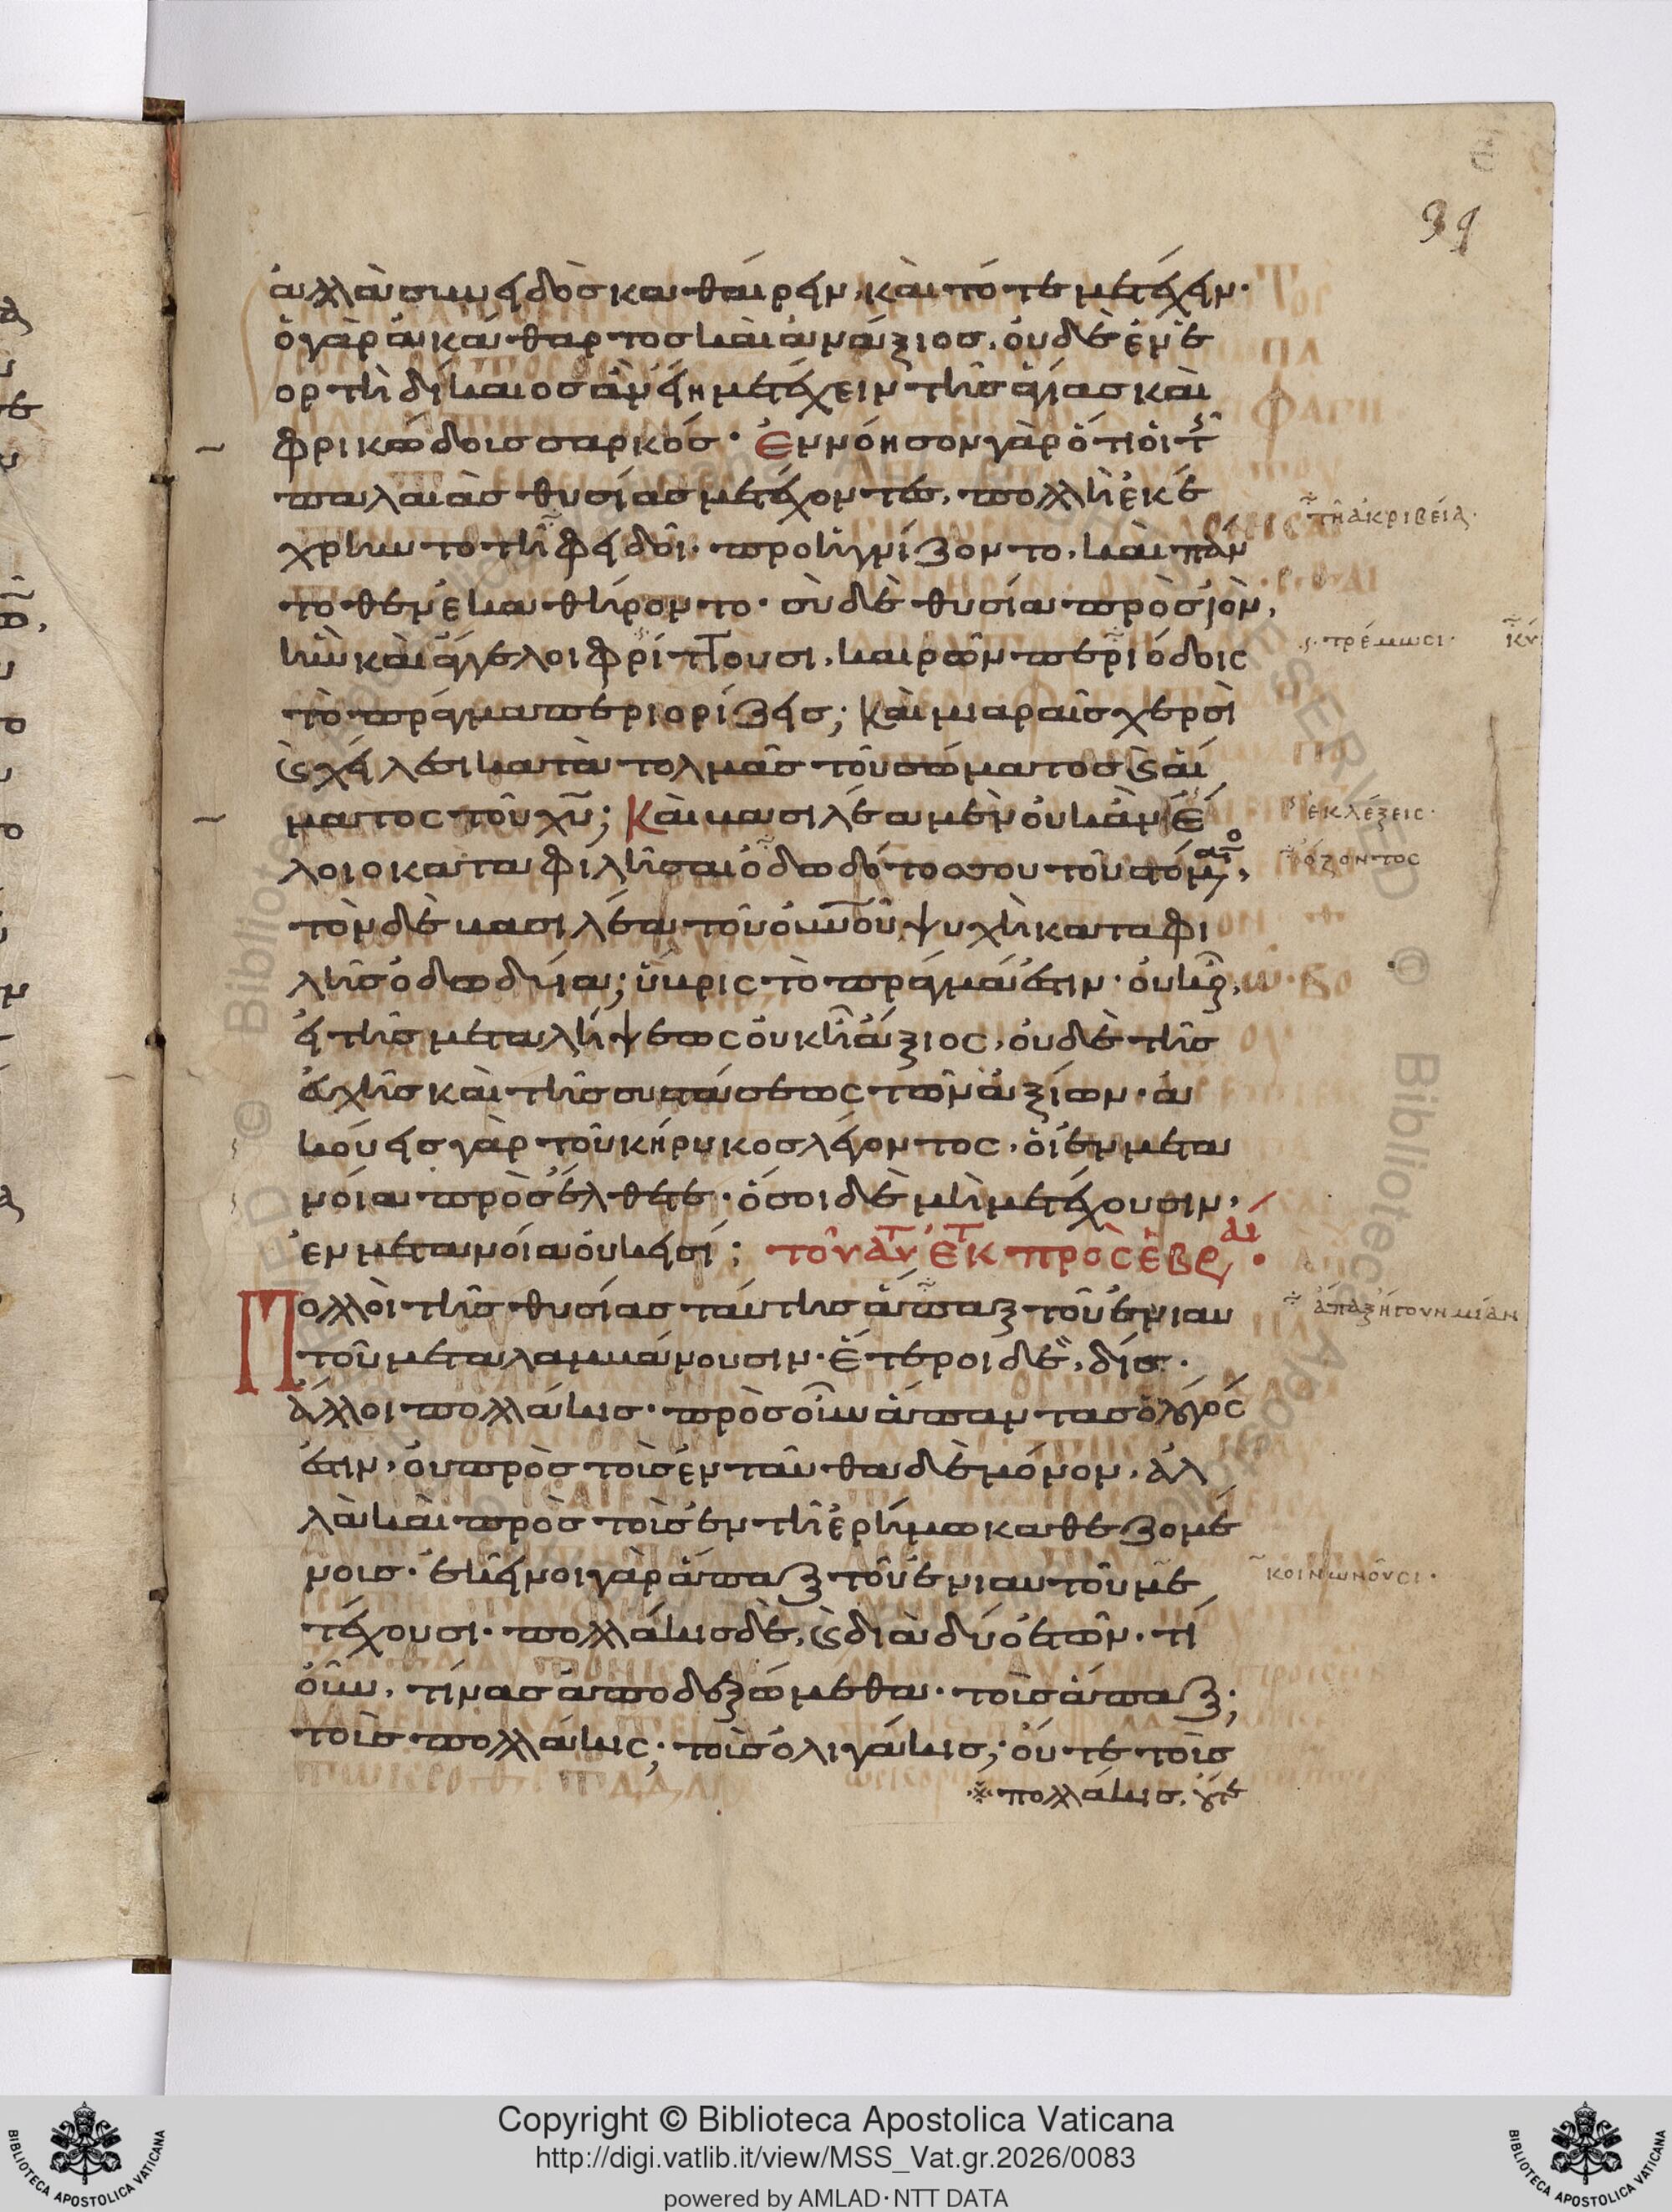 39
ἀλλὰ συνειδὸς καθαίρειν, καὶ τότε μετέχειν·
ὁ γὰρ ἀκάθαρτος καὶ ἀνάξιος, οὐδὲ ἐν ἑ
ορτῆ δίκαιος ἂν εἴη μετέχειν τῆς ἁγίας καὶ
φρικώδοις σαρκός· Ἐννόησον γὰρ ὅτι οἱ τ
παλαιὰς θυσίας μετέχοντες, πολλῆ ἐκέ
χρηντο τῆ φειδοῖ· προηγνίζοντο, καὶ πάν
τοθεν ἐκαθήροντο· σὺ δὲ θυσία προσιὼν,
ἣν καὶ ἄγγελοι φρίττουσι, καιρῶν περιόδοις
τὸ πρᾶγμα περιορίζεις; Καὶ μιαραῖς χερσὶ
ϗ χείλεσι κατατολμᾶς τοῦ σώματος ϗ αἵ
ματος τοῦ χῦ; Καὶ βασιλέα μὲν οὐκ ἂν ἕ
λοιο καταφιλῆσαι ὀδωδότος σου τοῦ στόματ,
τὸν δὲ βασιλέα τοῦ οὐνοῦ ψυχῆ καταφι
λῆς ὀδωδυία; ὕβρις τὸ πρᾶγμα ἐστιν· οὐκ
εἶ τῆς μεταλήψεως οὐκ ἦ ἄξιος, οὐδὲ τῆς
εὐχῆς καὶ τῆς συτάσεως τῶν ἀξίων· ἀ
κούεις γὰρ τοῦ κήρυκος λέγοντος, οἱ ἐν μετα
νοία προσέλθετε· ὅσοι δὲ μὴ μετέχουσιν,
ἐν μετανοία οὐκ εἰσί; τοῦ αὐτ ἐκ τ πρὸς ἑβρ αι·
Πολλοὶ τῆς θυσίας ταύτης ἅπαξ τοῦ ἐνιαυ
τοῦ μεταλαμβάνουσιν· ἕτεροι δὲ, δίς·
ἄλλοι πολλάκις· πρὸς οὖν ἅπαντας ὁ λόγος
ἐστιν, οὐ πρὸς τοὺς ἐνταῦθα δὲ μόνον, ἀλ
λὰ καὶ πρὸς τοὺς ἐν τῆ ἐρήμω καθεζομέ
νοις· ἐκεῖνοι γὰρ ἅπαξ τοῦ ἐνιαυτοῦ με
τέχουσι· πολλάκις δὲ, ϗ διὰ δύο ἐτῶν· τί
οὖν, τίνας ἀποδεξώμεθα· τοὺς ἅπαξ;
τοὺς πολλάκις; τοὺς ὀλιγάκις; οὔτε τοὺς
πολλάκις, οὔτε
τῆ ἀκριβεία·
τρέμωσι·
ἐκλέξεις·
ὄζοντος
ἅπαξ ἤγουν μίαν
κοινωνοῦσι·
Copyright © Biblioteca Apostolica Vaticana
http://digi.vatlib.it/view/MSS_Vat.gr.2026/0083
powered by AMLAD·NTT DATA
BIBLIOTECA APOSTOLICA VATICANA
BIBLIOTECA APOSTOLICA VATICANA